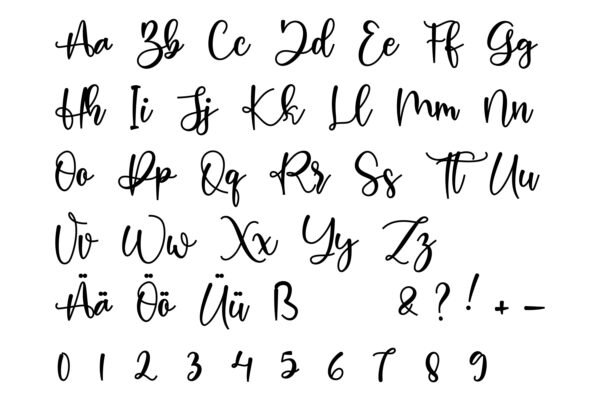 Aa Bb Cc Dd Ee Ff Gg
Hh Ii Jj Kk Ll Mm Nn
Oo Pp Qq Rr Ss Tt Uu
Vv Ww Xx Yy Zz
Ää Öö Üü ß & ? ! + -
0 1 2 3 4 5 6 7 8 9